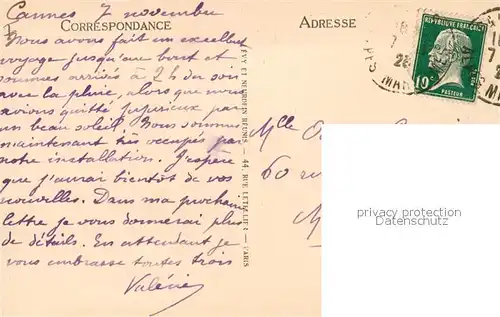 Cannes 7 novembre
CORRESPONDANCE
ADRESSE
RÉPUBLIQUE FRANÇAISE
10c
PASTEUR
Nous avons fait un excellent
voyage jusqu'au bout et
sommes arrivés à 2h du soir
avec la pluie, alors que nous
avions quitté par
un beau soleil. Nous sommes
maintenant très occupés par
notre installation. J'espère
que j'aurai bientôt de vos
nouvelles. Dans ma prochaine
lettre je vous donnerai plus
de détails. En attendant je
vous embrasse toutes trois
Valérie
LÉVY ET NEURDEIN RÉUNIS - 44, RUE LETELLIER - PARIS
Mlle
60 ru
privacy protection
watermark